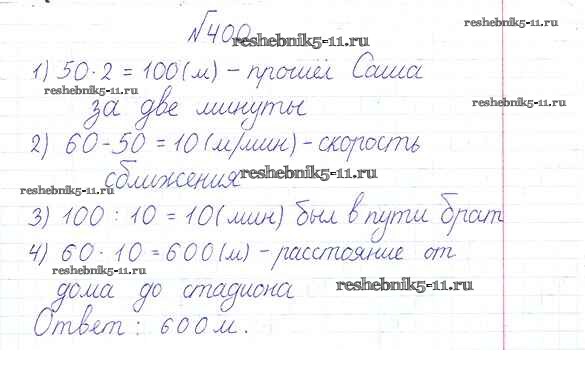 №400
reshebnik5-11.ru
reshebnik5-11.ru
1) 50·2 = 100 (м) – прошёл Саша
reshebnik5-11.ru
за две минуты
reshebnik5-11.ru
2) 60-50 = 10 (м/мин) – скорость
сближения
reshebnik5-11.ru
reshebnik5-11.ru
3) 100 : 10 = 10 (мин) был в пути брат
4) 60 · 10 = 600 (м) – расстояние от
reshebnik5-11.ru
дома до стадиона
reshebnik5-11.ru
Ответ: 600 м.